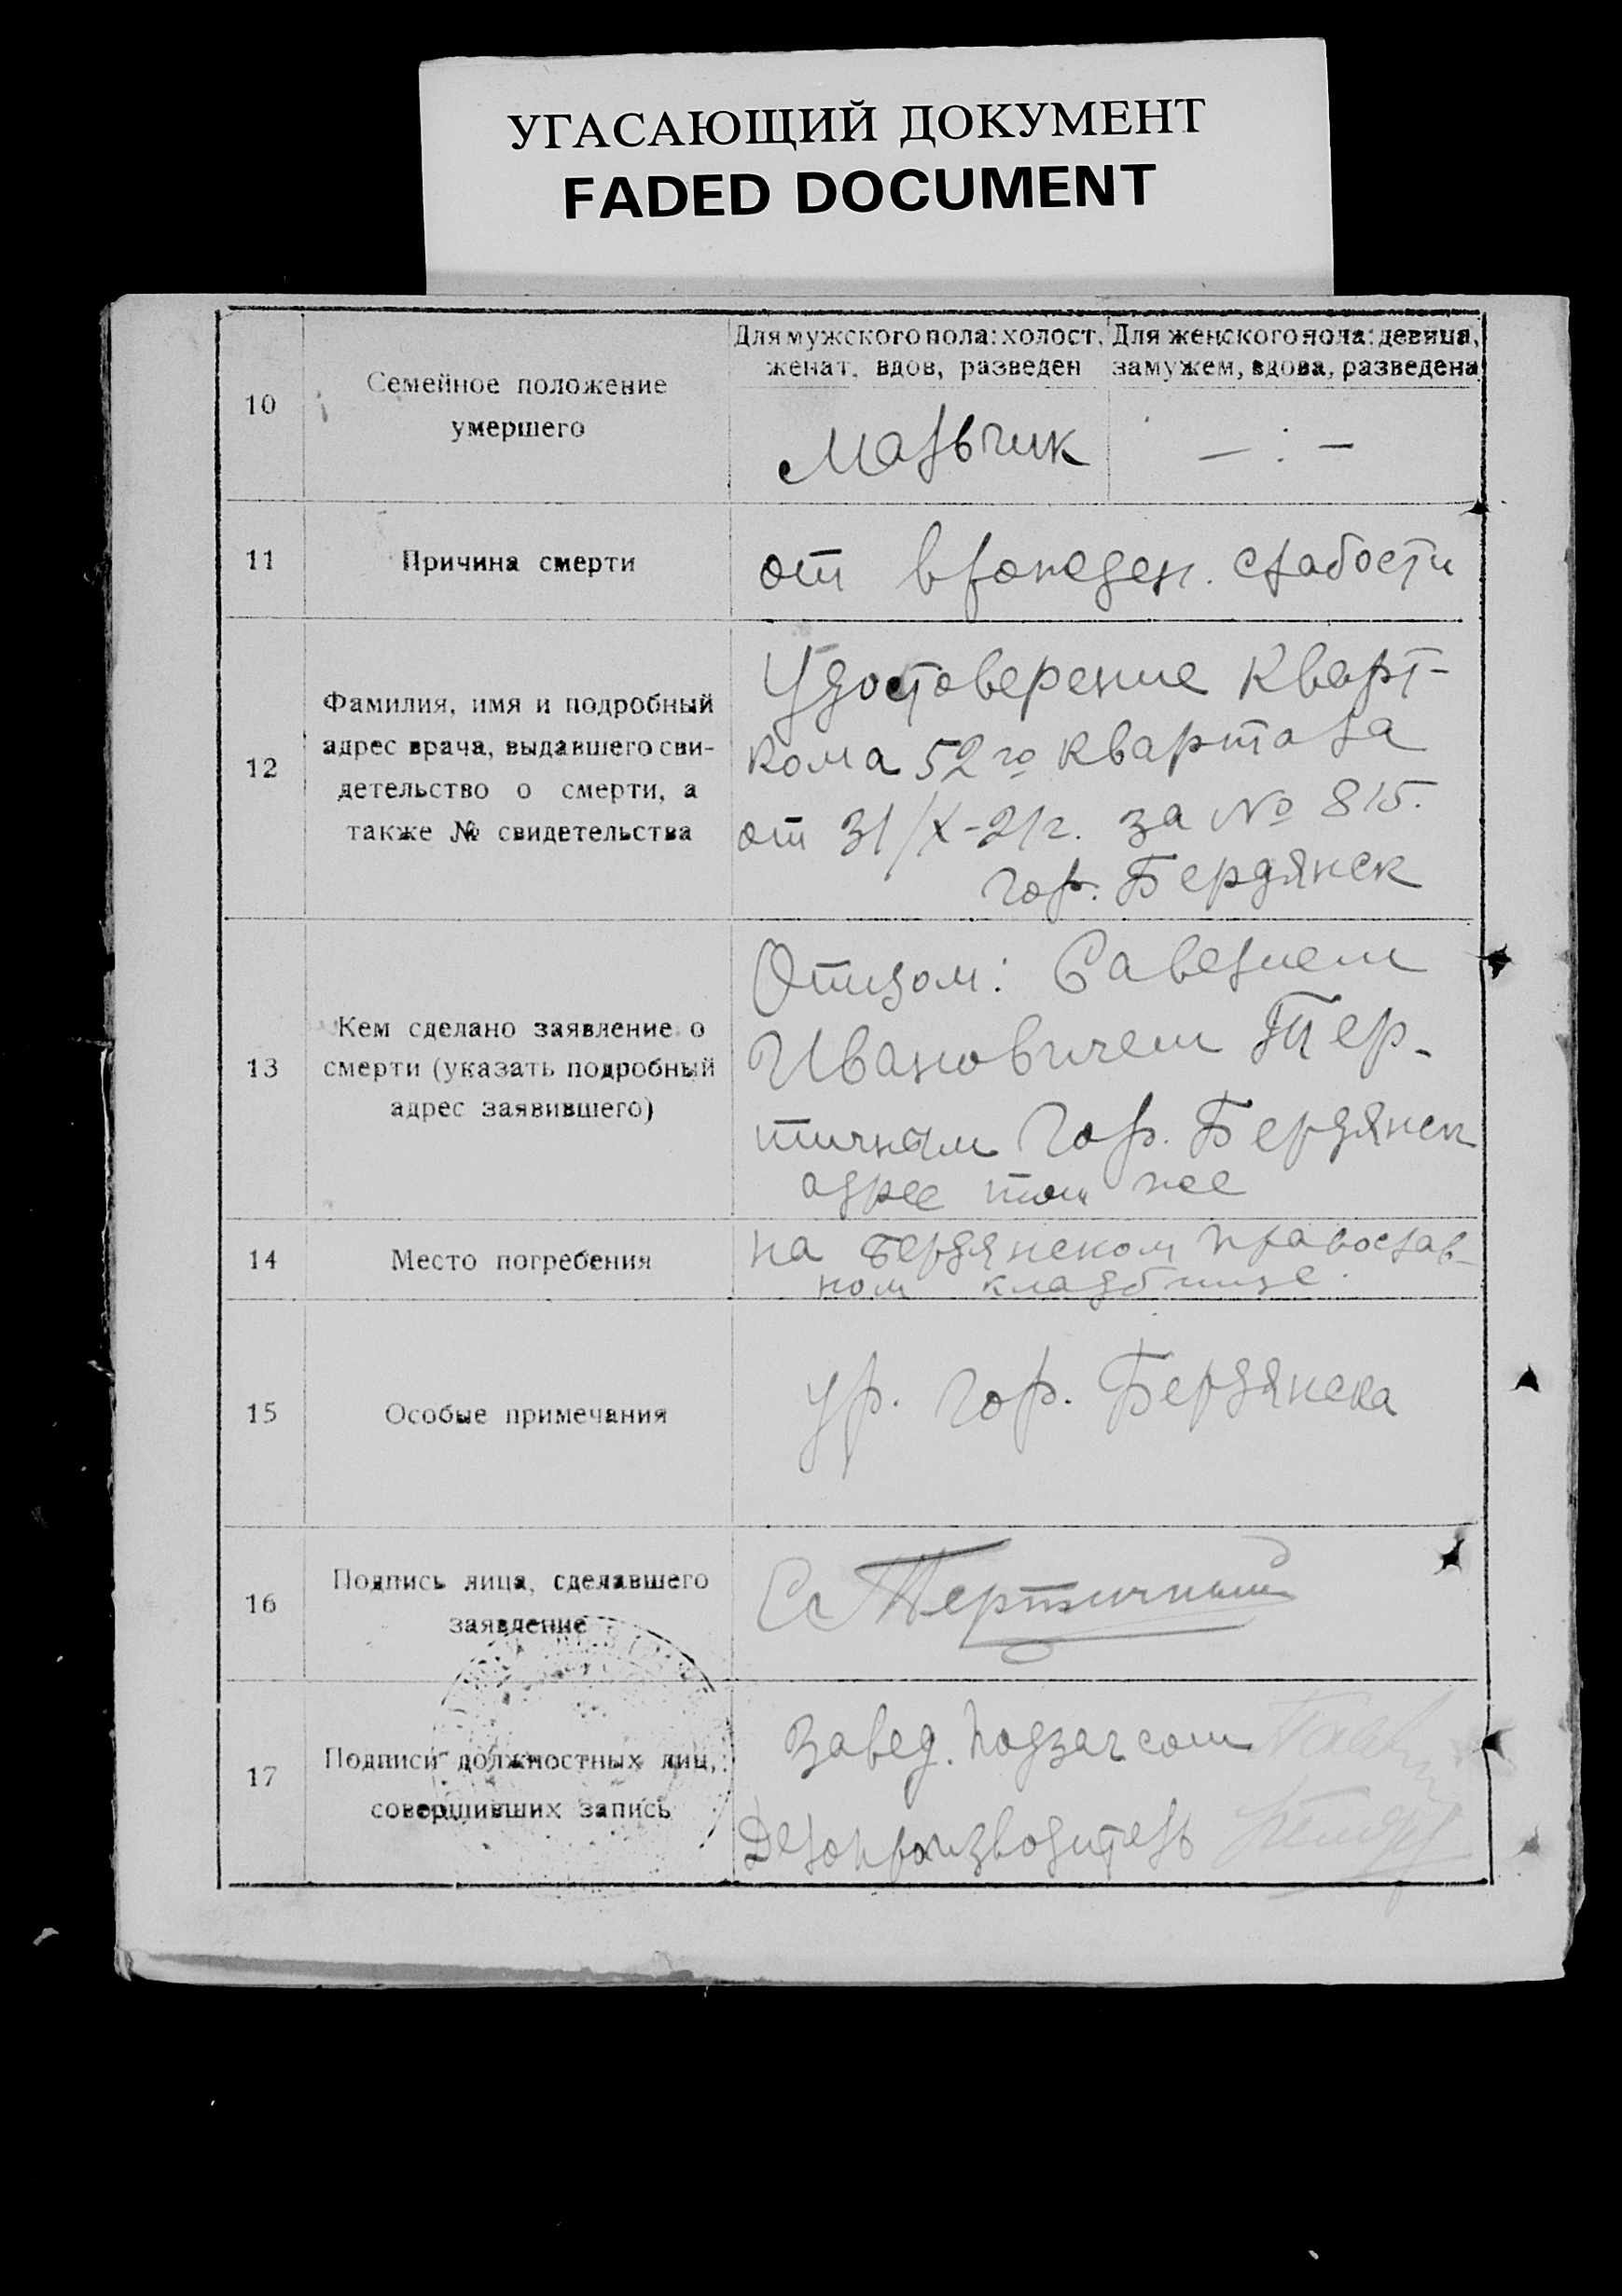 УГАСАЮЩИЙ ДОКУМЕНТ
FADED DOCUMENT
10
Семейное положение
умершего
Для мужского пола: холост,
женат, вдов, разведен
Для женского пола: девица,
замужем, вдова, разведена
Мальчик
— : —
11
Причина смерти
от врожден. слабости
12
Фамилия, имя и подробный
адрес врача, выдавшего сви-
детельство о смерти, а
также № свидетельства
Удостоверение Кварт-
кома 52го квартала
от 31/X-21г. за № 815.
гор. Бердянск
13
Кем сделано заявление о
смерти (указать подробный
адрес заявившего)
Отцом: Савелием
Ивановичем Тер-
тичным гор. Бердянск
адрес тот же
14
Место погребения
на Бердянском православ-
ном кладбище.
15
Особые примечания
ур. гор. Бердянска
16
Подпись лица, сделавшего
заявление
С Тертичный
17
Подписи должностных лиц,
совершивших запись
Завед. Подзагсом
Делопроизводитель